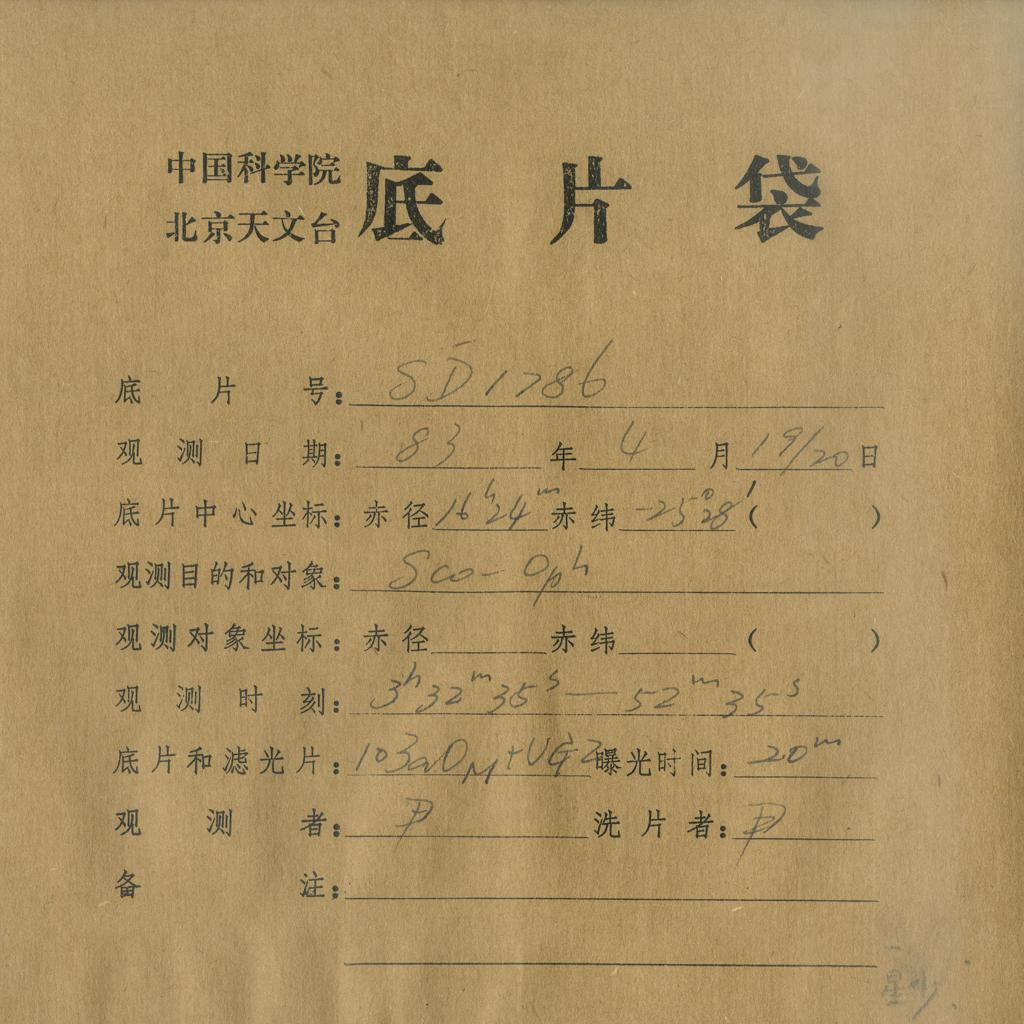 中国科学院
北京天文台
底片袋
底片号：SD1786
观测日期：83年4月19/20日
底片中心坐标：赤径16h24m赤纬-25°28′（ ）
观测目的和对象：Sco-Oph
观测对象坐标：赤径 赤纬 （ ）
观测时刻：3h32m35s—52m35s
底片和滤光片：103aO+UG2曝光时间：20m
观测者：尹 洗片者：尹
备注：